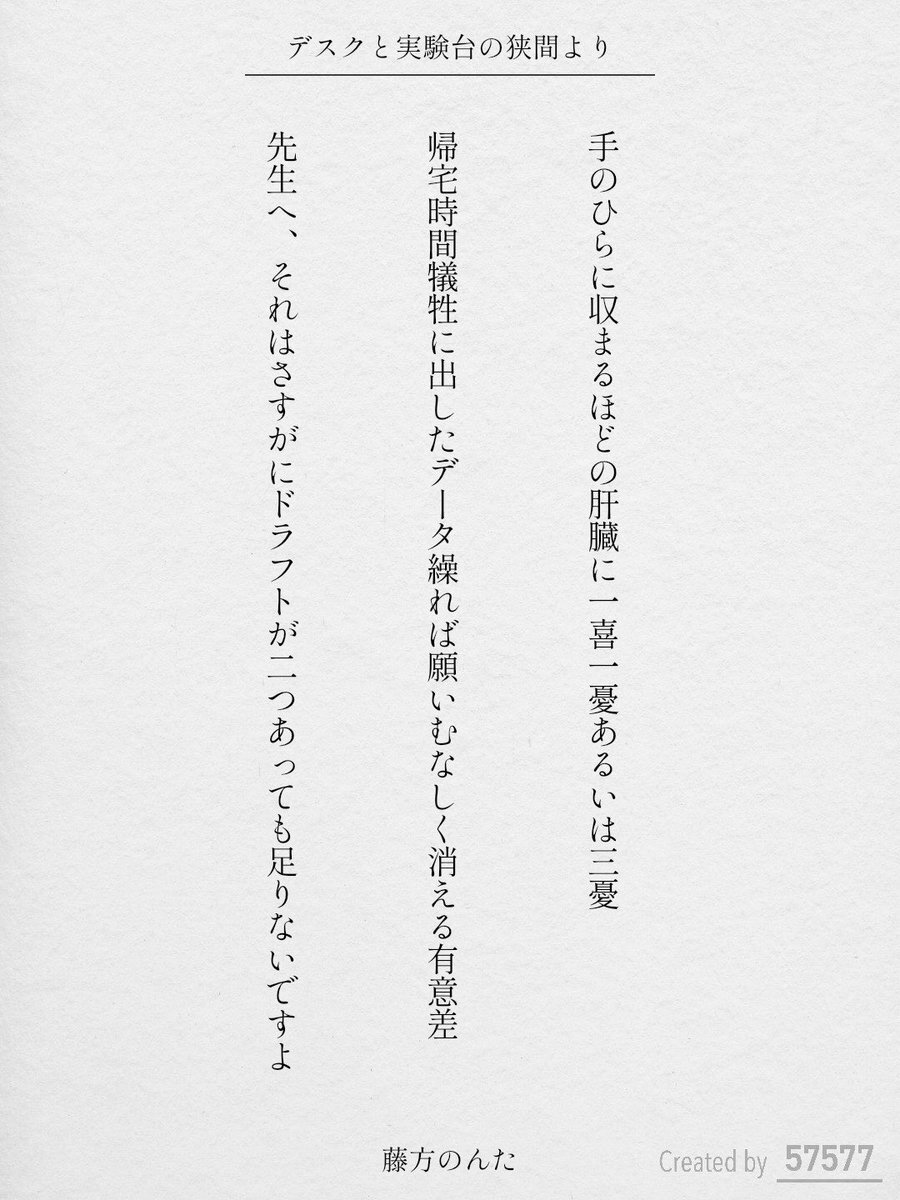 デスクと実験台の狭間より
手のひらに収まるほどの肝臓に一喜一憂あるいは三憂
帰宅時間犠牲に出したデータ繰れば願いむなしく消える有意差
先生へ、それはさすがにドラフトが二つあっても足りないですよ
藤方のんた
Created by 57577